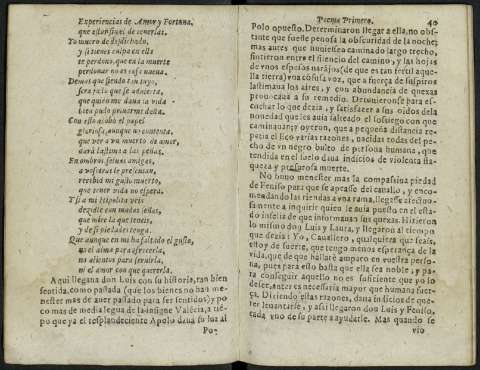 Experiencias de Amor y Fortuna,
que estan sinuel de tenerlas.
Yo muero de desdichado,
y si tienes culpa en ello
te perdono, que en la muerte
perdonar no es cosa nueua.
Demas que siendo tan tuyo,
sera justo que se aduierta,
que quien me daua la vida
bien pudo priuarme desta.
Con esto acabò el papel
gloriosa, aunque no contenta,
que ver a vn muerto de amor,
darà lastima a las peñas.
En ombros seluas amigas,
a vosotras le presentan,
recebid mi gusto muerto,
que tener vida no espera.
Y si a mi Hipolita veis
dezidle con mudas señas,
que mire la que teneis,
y de si piedades tenga.
Que aunque en mi ha faltado el gusto,
no el alma para ofrecerla,
no alientos para seruirla,
ni el amor con que quererla.
Aqui llegaua don Luis con su historia, tan bien
sentida, como passada (que los bienes no han me
nester mas de auer passado para ser sentidos) y po
co mas de media legua de la insigne Valécia, a tié
po que ya el resplandeciente Apolo daua su luz al
Po-
Poema Primero. 40
Polo opuesto. Determinaron llegar a ella, no obs-
tante que fuesse penosa la obscuridad de la noche;
mas antes que huuiessen caminado largo trecho,
sintieron entre el silencio del camino, y las hojas
de vnos espesos narájos (de que es tan fertil aque-
lla tierra) vna cófusa voz, que a fuerça de suspiros
lastimaua los aires, y con abundancia de quexas
prouocaua a su remedio. Detuuieronse para es-
cuchar lo que dezia, y satisfazer a sus oidos de la
nouedad que les auia salteado el sossiego con que
caminauan; y oyeron, que a pequeña distancia re-
petia el Eco varias razones, nacidas todas del pe-
cho de vn negro bulto de persona humana, que
tendida en el suelo daua indicios de violenta fla-
queza y presurosa muerte.
No huuo menester mas la compassiua piedad
de Feniso para que se apeasse del cauallo, y enco-
mendando las riendas a vna rama, llegasse
a inquirir quien le auia puesto en el esta-
do infeliz de que informauan sus quexas. Hizieron
lo mismo don Luis y Laura, y llegaron al tiempo
que dezia: Yo, Cauallero, qualquiera que seais,
estoy de suerte, que tengo menos esperança de la
vida, que de que hallarè amparo en vuestra perso-
na, pues para esso basta que ella sea noble, y pa-
ra conseguir aquello no es suficiente que yo lo
desee, antes es necessaria mayor que humana fuer-
ça. Diziendo estas razones, daua indicios de que-
rer leuantarse, y assi llegaron don Luis y Feniso,
cada vno de su parte a ayudarle. Mas quando se
vio